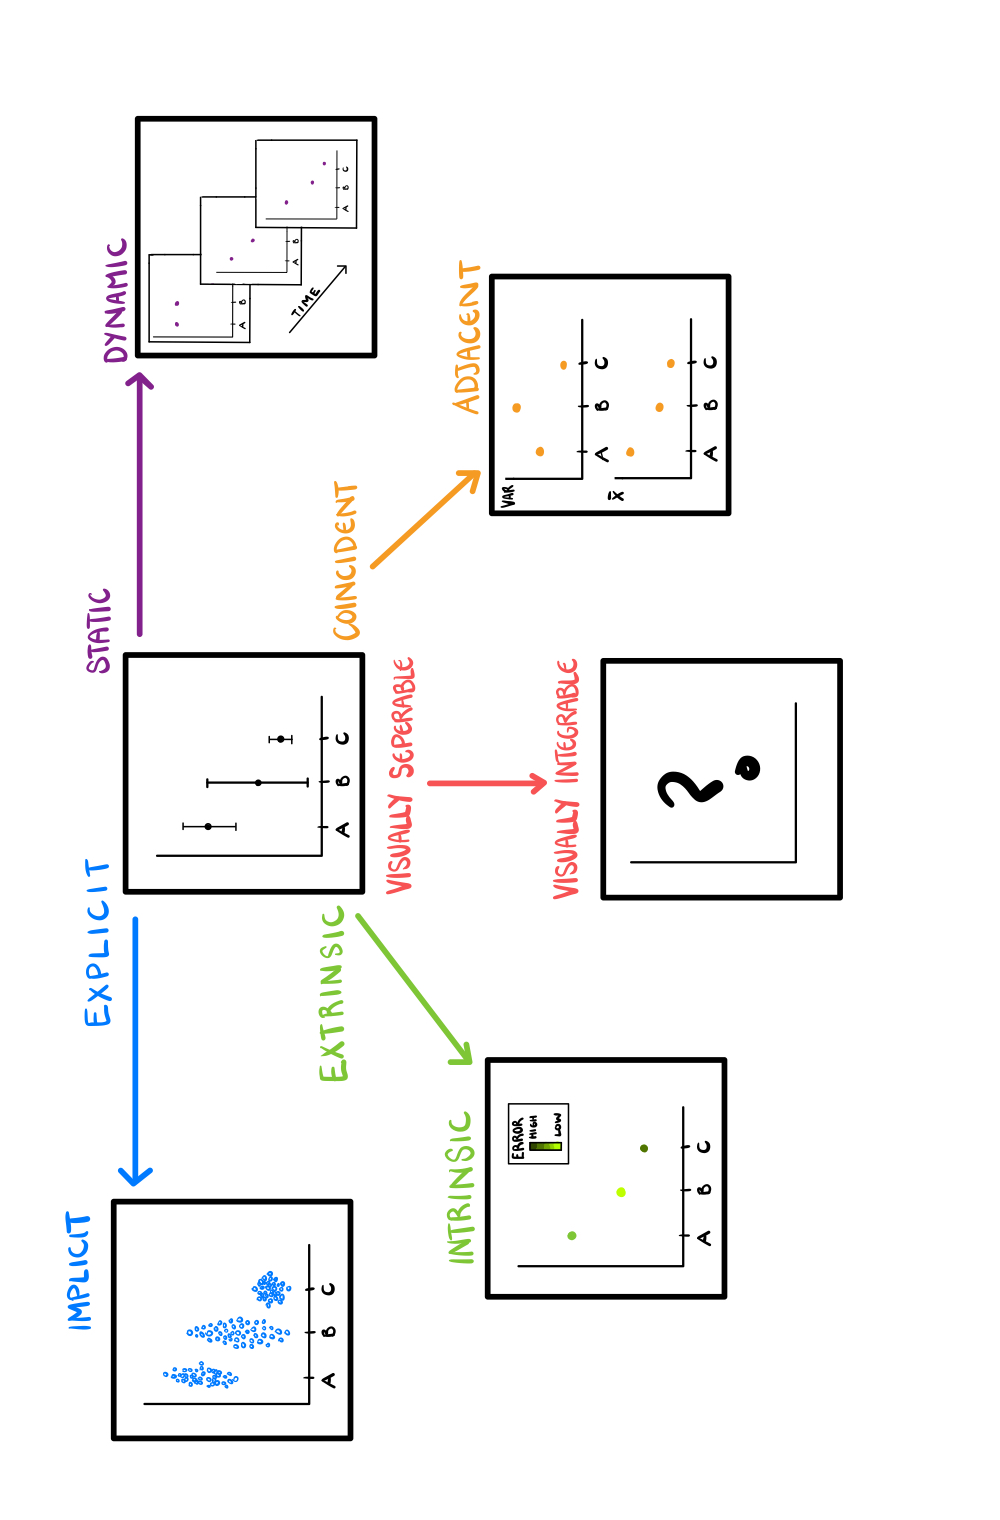 IMPLICIT
EXPLICIT
STATIC
DYNAMIC
A B C
A B C
A B
A B
A B C
TIME
EXTRINSIC
COINCIDENT
VISUALLY SEPERABLE
INTRINSIC
ADJACENT
ERROR
HIGH
LOW
A B C
VISUALLY INTEGRABLE
?
VAR
A B C
x̄
A B C